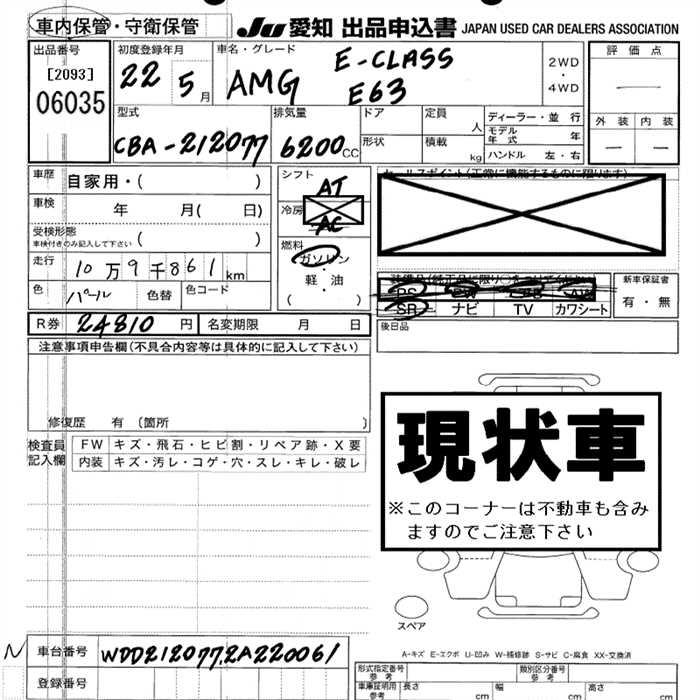 車内保管・守衛保管 JU 愛知 出品申込書 JAPAN USED CAR DEALERS ASSOCIATION
出品番号 初度登録年月 車名・グレード 評価点
[2093] 22 5月 AMG E-CLASS 2WD
06035 E63 ・4WD
型式 排気量 ドア 定員 人 ディーラー・並行 外装 内装
CBA-212077 6200CC 形状 積載 kg モデル年式 年
ハンドル 左・右
車歴 自家用・( ) シフト AT
車検 年 月( 日) 冷房 AC
受検形態 ( )
車検付きのみ記入して下さい
燃料 ガソリン
走行 10万9千861km 軽・油
色 パール 色替 色コード ( )
新車保証書
有・無
SR ナビ TV カワシート
R券 24810円 名変期限 月 日 後日品
注意事項申告欄(不具合内容等は具体的に記入して下さい)
修復歴 有 (箇所 )
検査員記入欄 FW キズ・飛石・ヒビ割・リペア跡・X要
内装 キズ・汚レ・コゲ・穴・スレ・キレ・破レ
現状車
※このコーナーは不動車も含み
ますのでご注意下さい
スペア
A-キズ E-エクボ U-凹み W-補修跡 S-サビ C-腐食 XX-交換済
N 車台番号 WDD2120772A220061
登録番号
形式指定番号 参考 類別区分番号 参考
車庫証明用 参考 長さ cm 幅 cm 高さ cm